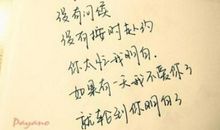 没有问候
没有按时赴约
你太忙我明白
如果有一天我不爱你了
就轮到你明白了
Dayano